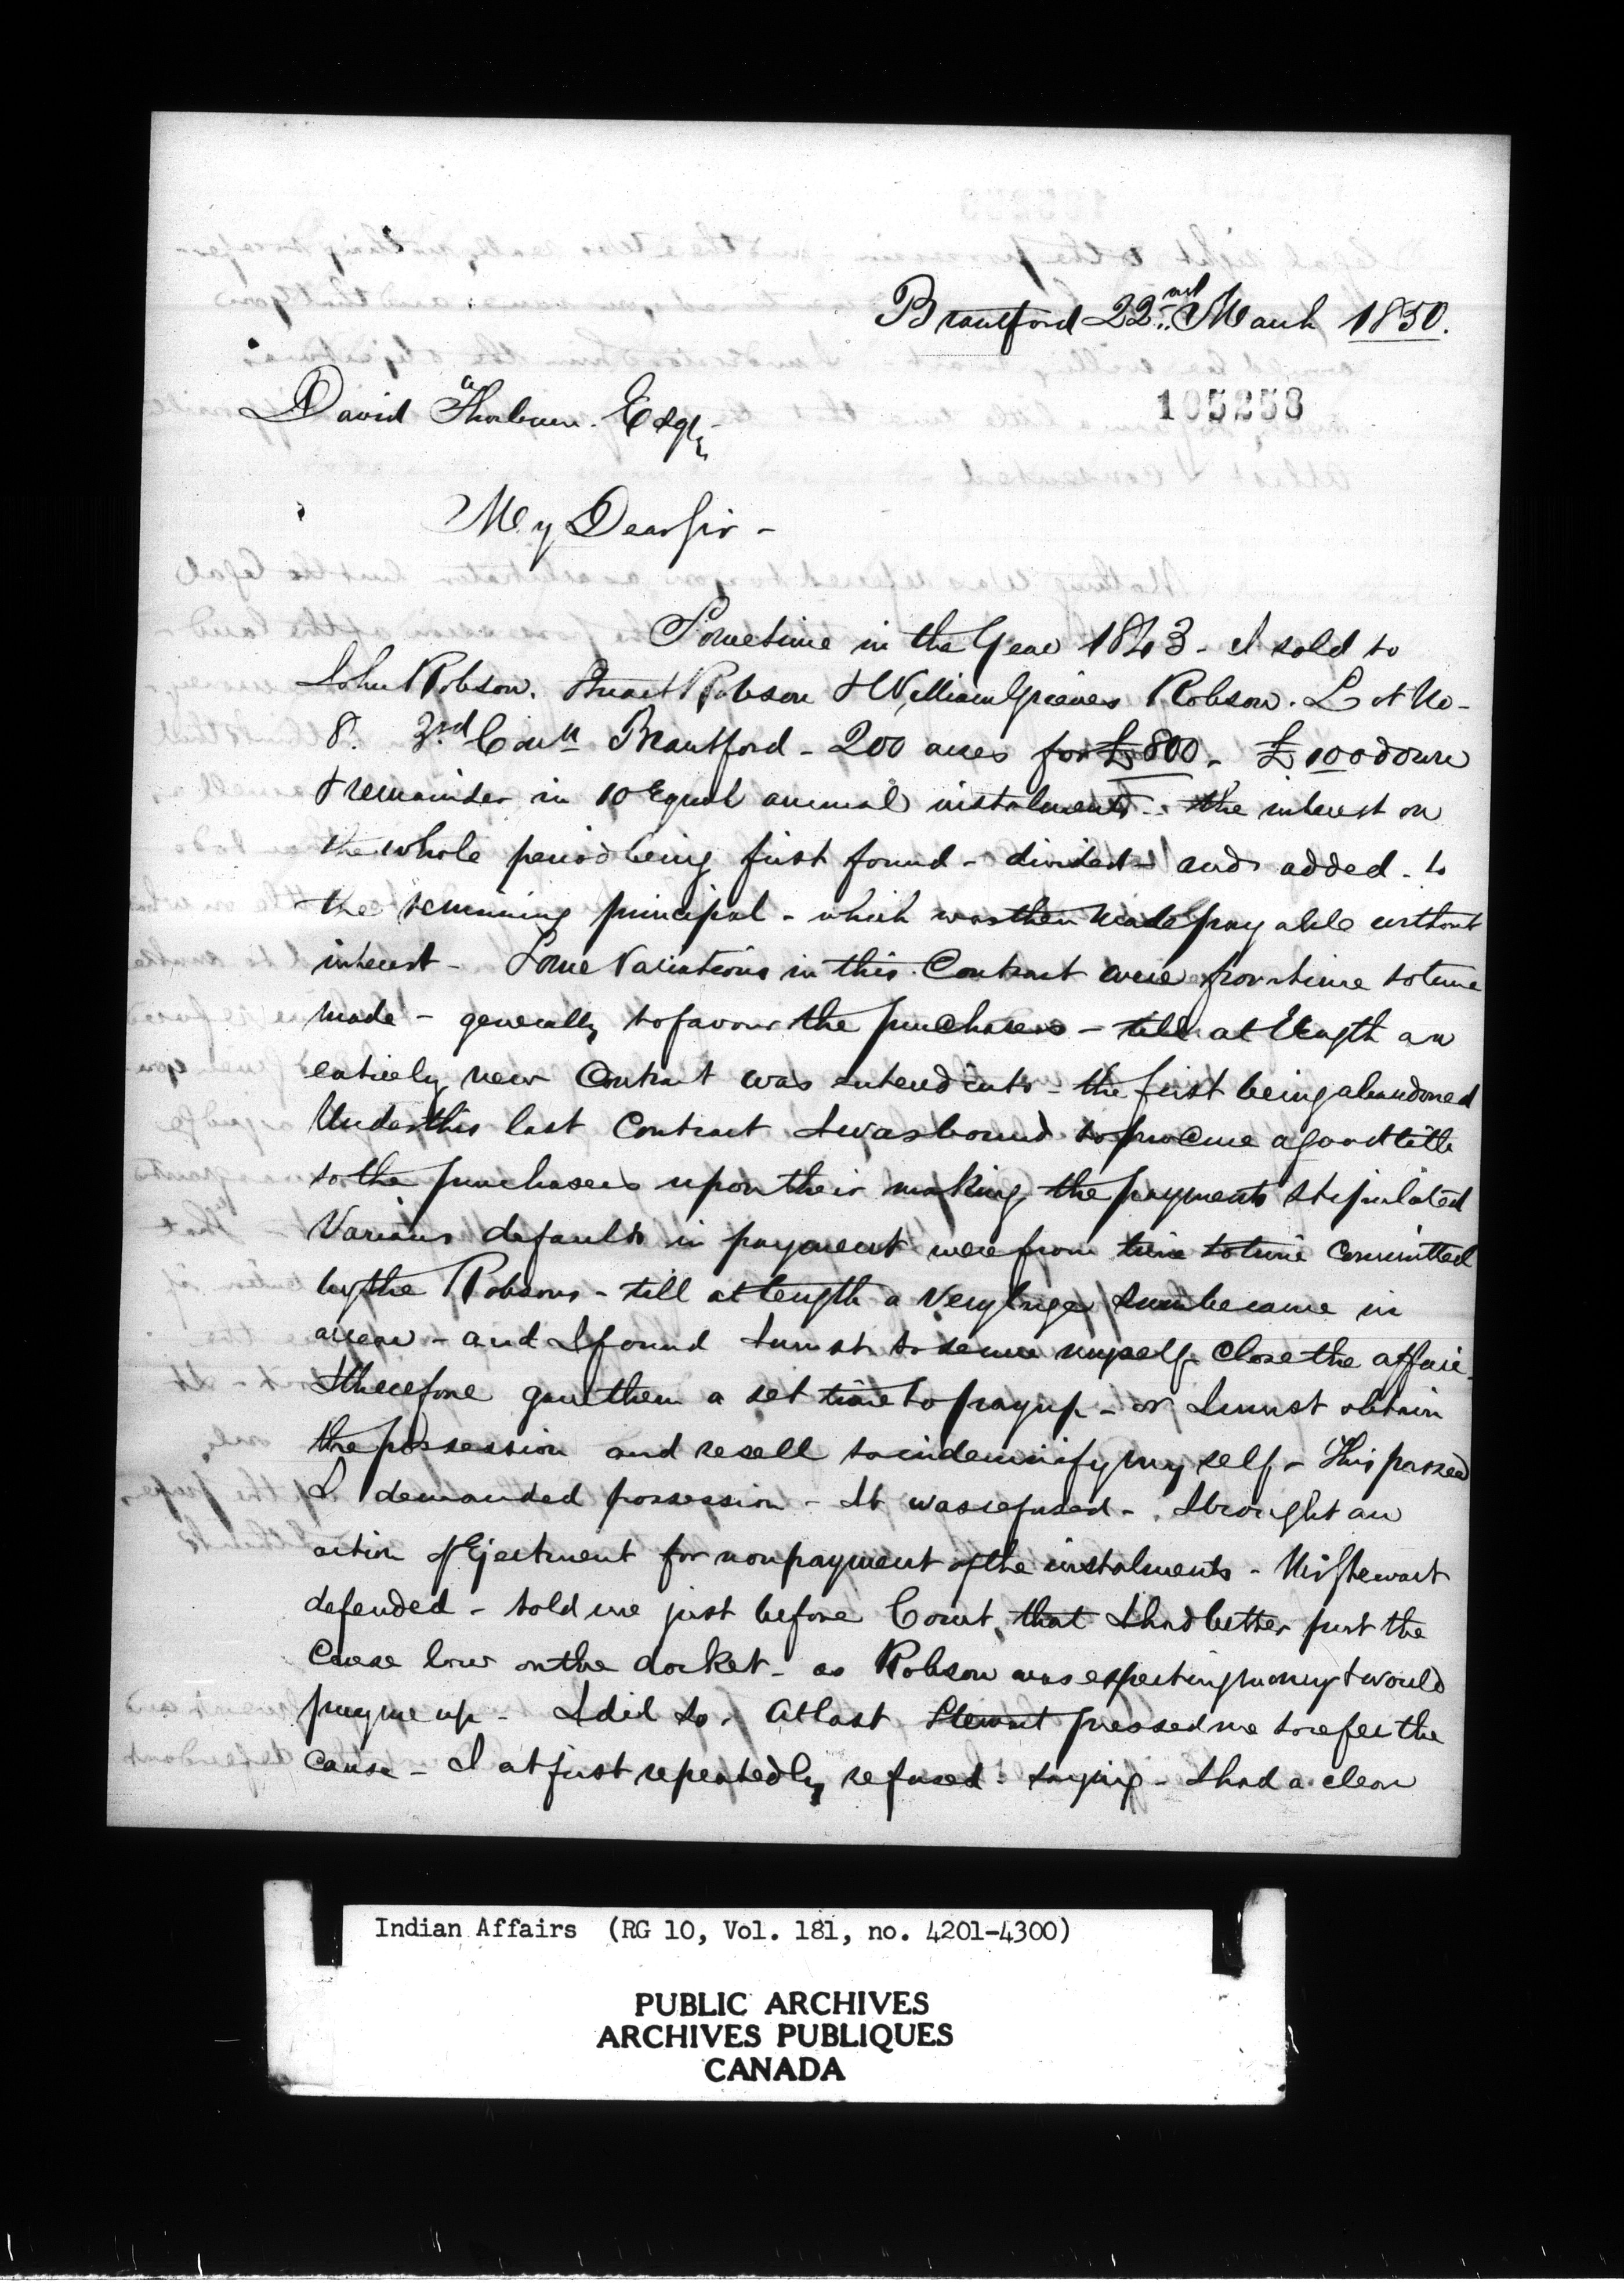 Brantford 22nd March 1850.
105253
David Thorburn. Esqr
My Dear Sir -
Sometime in the Year 1843 - I sold to
John Robson. Stuart Robson & William Greives Robson. Lot No -
8. 3rd Conn Brantford - 200 acres for £800 - £100 down
& remainder in 10 Equal annual instalments - the interest on
the whole period being first found - divided - and added - to
the remining principal - which was then made payable without
interest - Some Variations in this Contract were from time to time
made - generally to favour the purchasers - till at length an
entirely new Contract was entered into - the first being abandoned
Under this last Contract I was bound to procure a good title
to the purchasers upon their making the payments stipulated
Various defaults in payment were from time to time committed
by the Robsons - till at length a very large sum became in
arrear - and I found I must to secure myself close the affair -
I therefore gave them a set time to pay up - or I must obtain
the possession and resell to indemnify myself - This passed
I demanded possession - It was refused - I brought an
action of Ejectment for nonpayment of the instalments - Mr Stewart
defended - told me just before Court, that I had better put the
Cause low on the docket - as Robson was expecting money & would
pay me up - I did so. At last Stewart pressed me to refer the
cause - I at first repeatedly refused - saying - I had a clear
Indian Affairs (RG 10, Vol. 181, no. 4201-4300)
PUBLIC ARCHIVES
ARCHIVES PUBLIQUES
CANADA